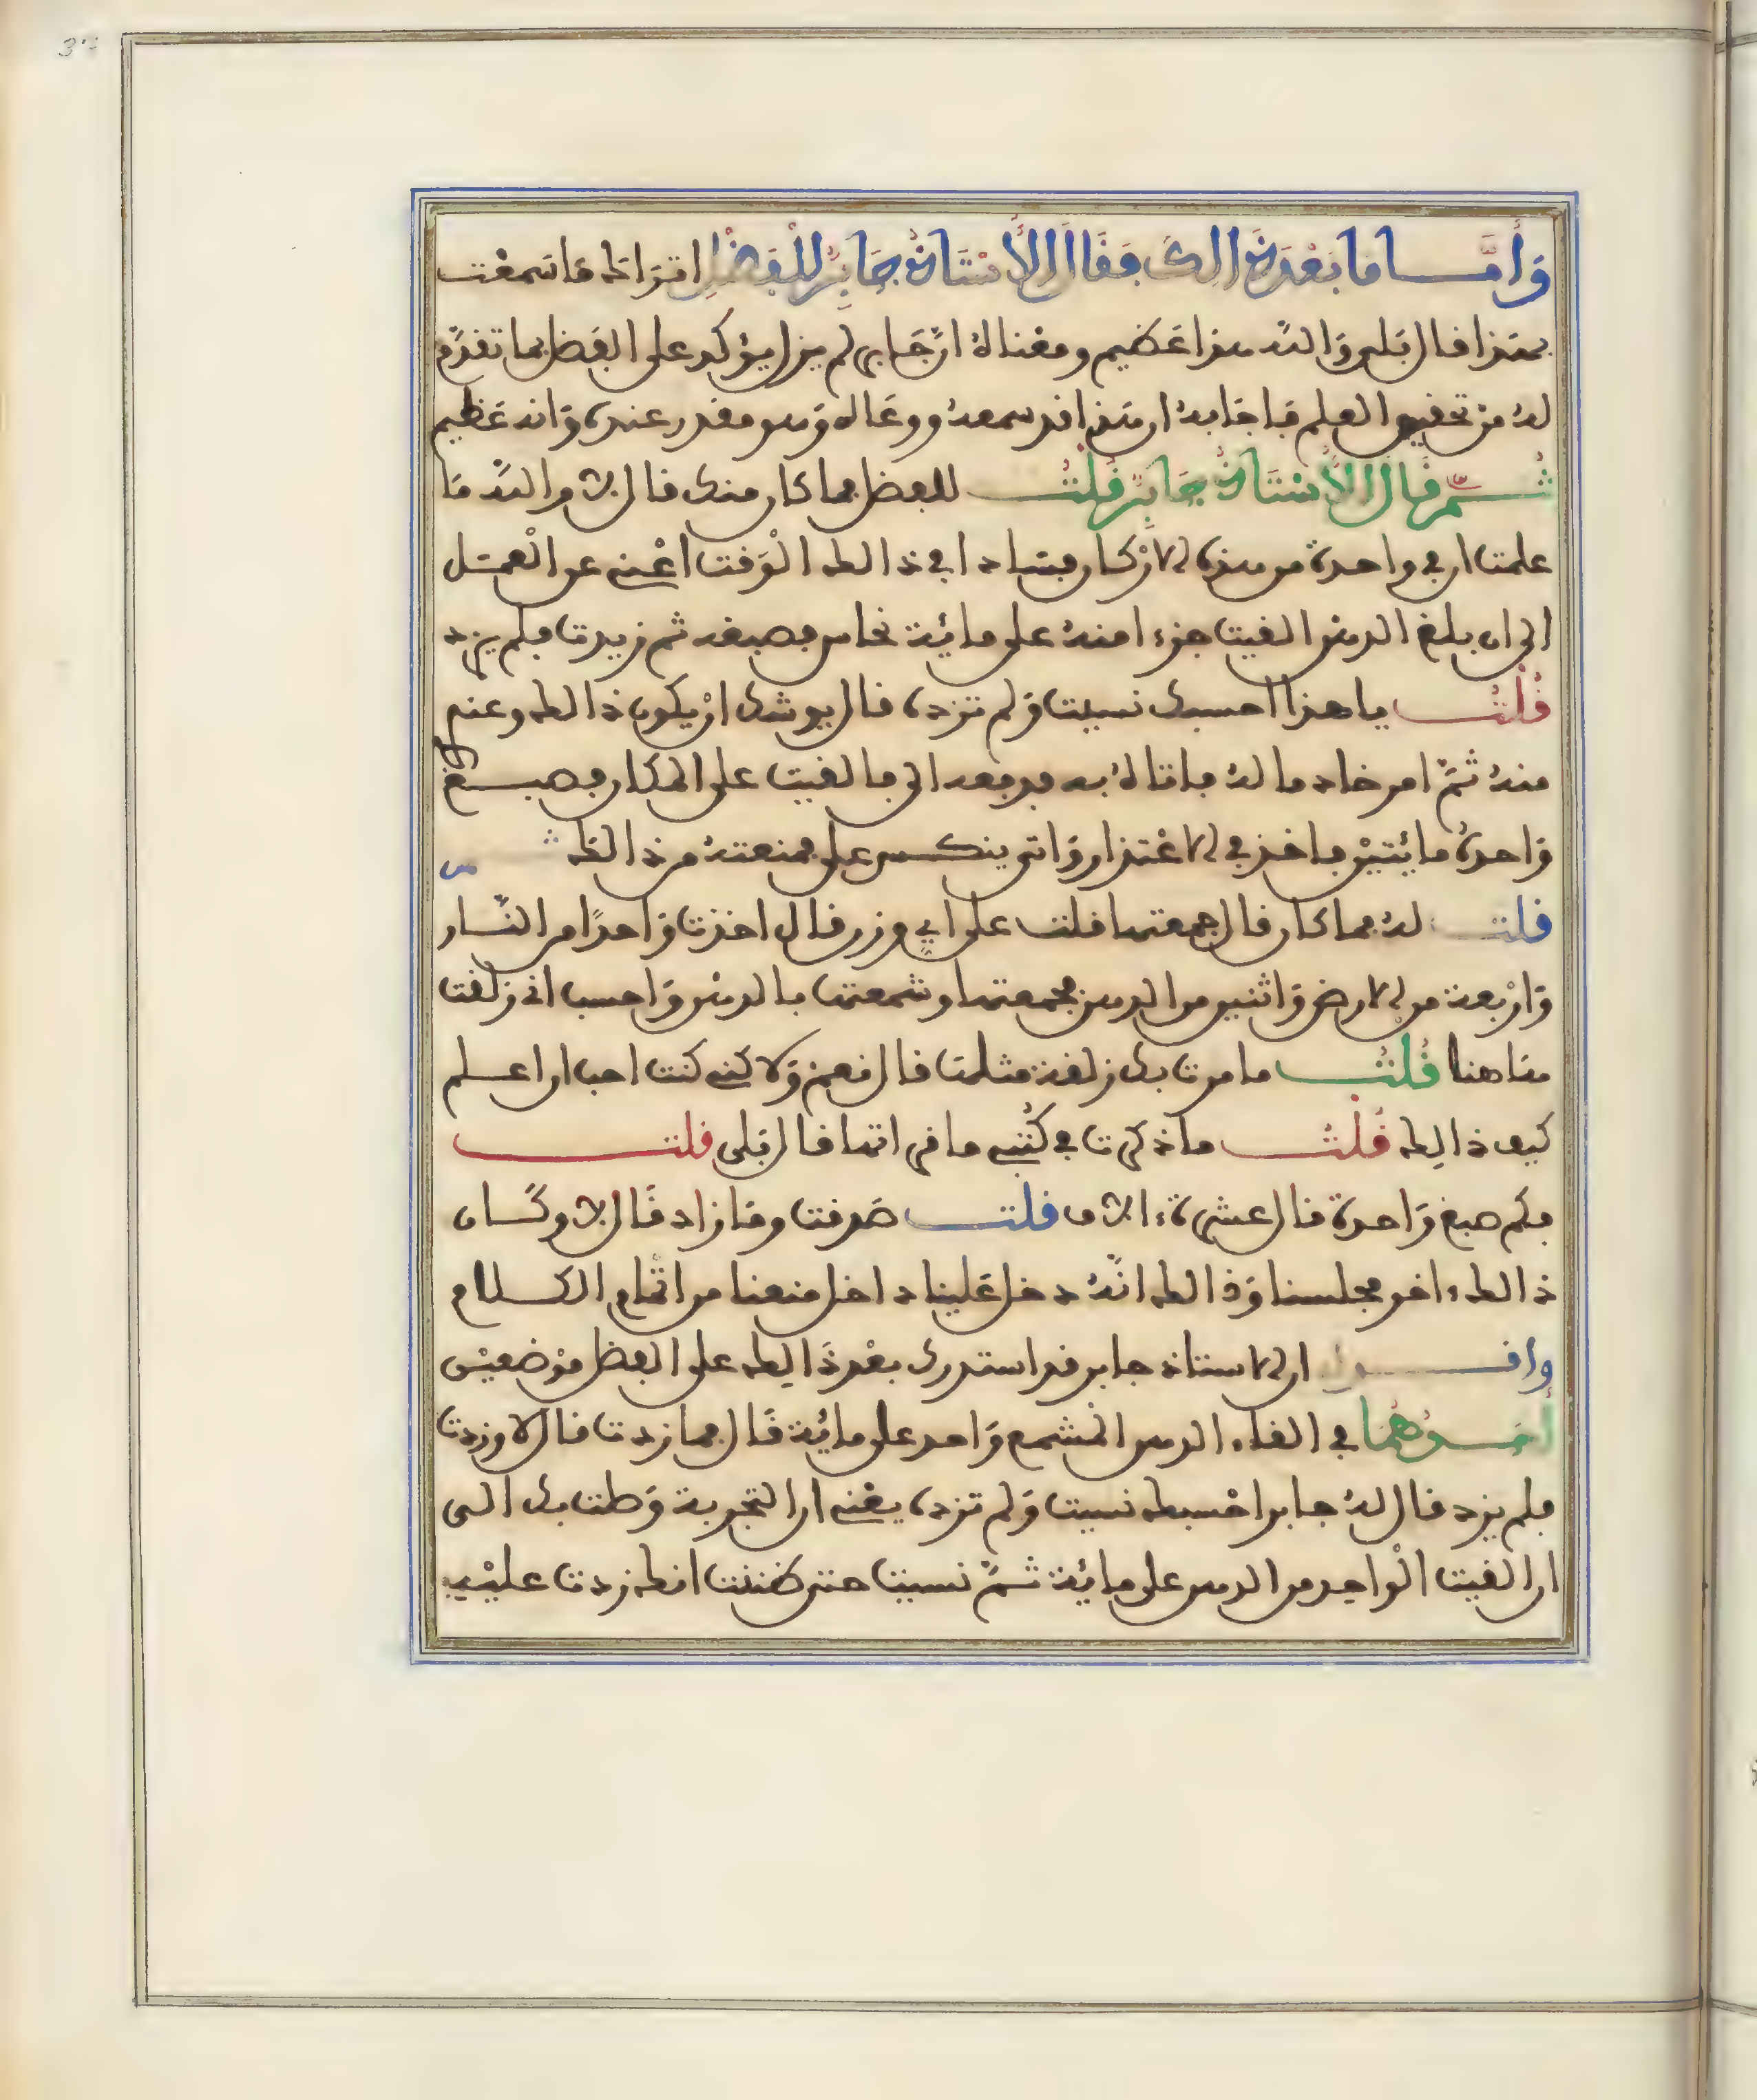 وَأَمَّا مَا بَعْدَ ذَالِكَ فَقَالَ الأُسْتَاذُ جَابِرٌ لِلْفَضْلِ اتراك ما سمعت
بهذا قال بلى والله هذا عظيم ومعناه ان جابر لم يزل يؤكد على الفضل بما تقدم
له من تحقيق العلم فاجابه ان هذا قد سمعه ووعاه وهو مقدر عنده وانه عظيم
ثُمَّ قَالَ الأُسْتَاذُ جَابِرٌ قُلْتُ للفضل فما كان منك قال لا والله ما
علمت ان في واحدة من هذه الاركان فسادا في ذالك الوقت اعني عن العمل
الى ان بلغ الدهن القيت جزءا منه على مائة نحاس فصبغه ثم زيدت فلم يزد
قُلْتُ يا هذا احسبك نسيت ولم تزده قال يوشك ان يكون ذالك وعنم
منه ثم امر خادما له فاتاه به فرجعه الي فالقيت على المكان فصبغ
واحدة مائتين فاخذ في الاعتذار واتى ينكس على فمنعته من ذالك
قلت له فما كان قال جمعتها قلت على اي وزن قال اخذت واحدا من النار
واربعة من الارض واثنين من الدهن فجمعتها وشمعتها بالدهن واحسب اني زلقت
هاهنا قُلْتُ ما مرت بك زلقة مثلها قال نعم ولاكني كنت احب ان اعلم
كيف ذالك قُلْتُ ما ذكرت في كتبي ما في اتها قال بلى قلت
فكم صبغ واحدة قال عشرة ءالاف قلت صدقت وما زاد قال لا وكان
ذالك ءاخر مجلسنا وذالك انه دخل علينا داخل منعنا من اتمام الكلام
واقول ان الاستاذ جابر قد استدرك بعد ذالك على الفضل موضعين
أحدهما في القاء الدهن المشمع واحد على مائة قال فما زدت قال لا وزدت
فلم يزد قال له جابر احسبك نسيت ولم تزده يعني ان التجربة وطت بك الى
ان القيت الواحد من الدهن على مائة ثم نسيت حتى ظننت انك زدت عليه